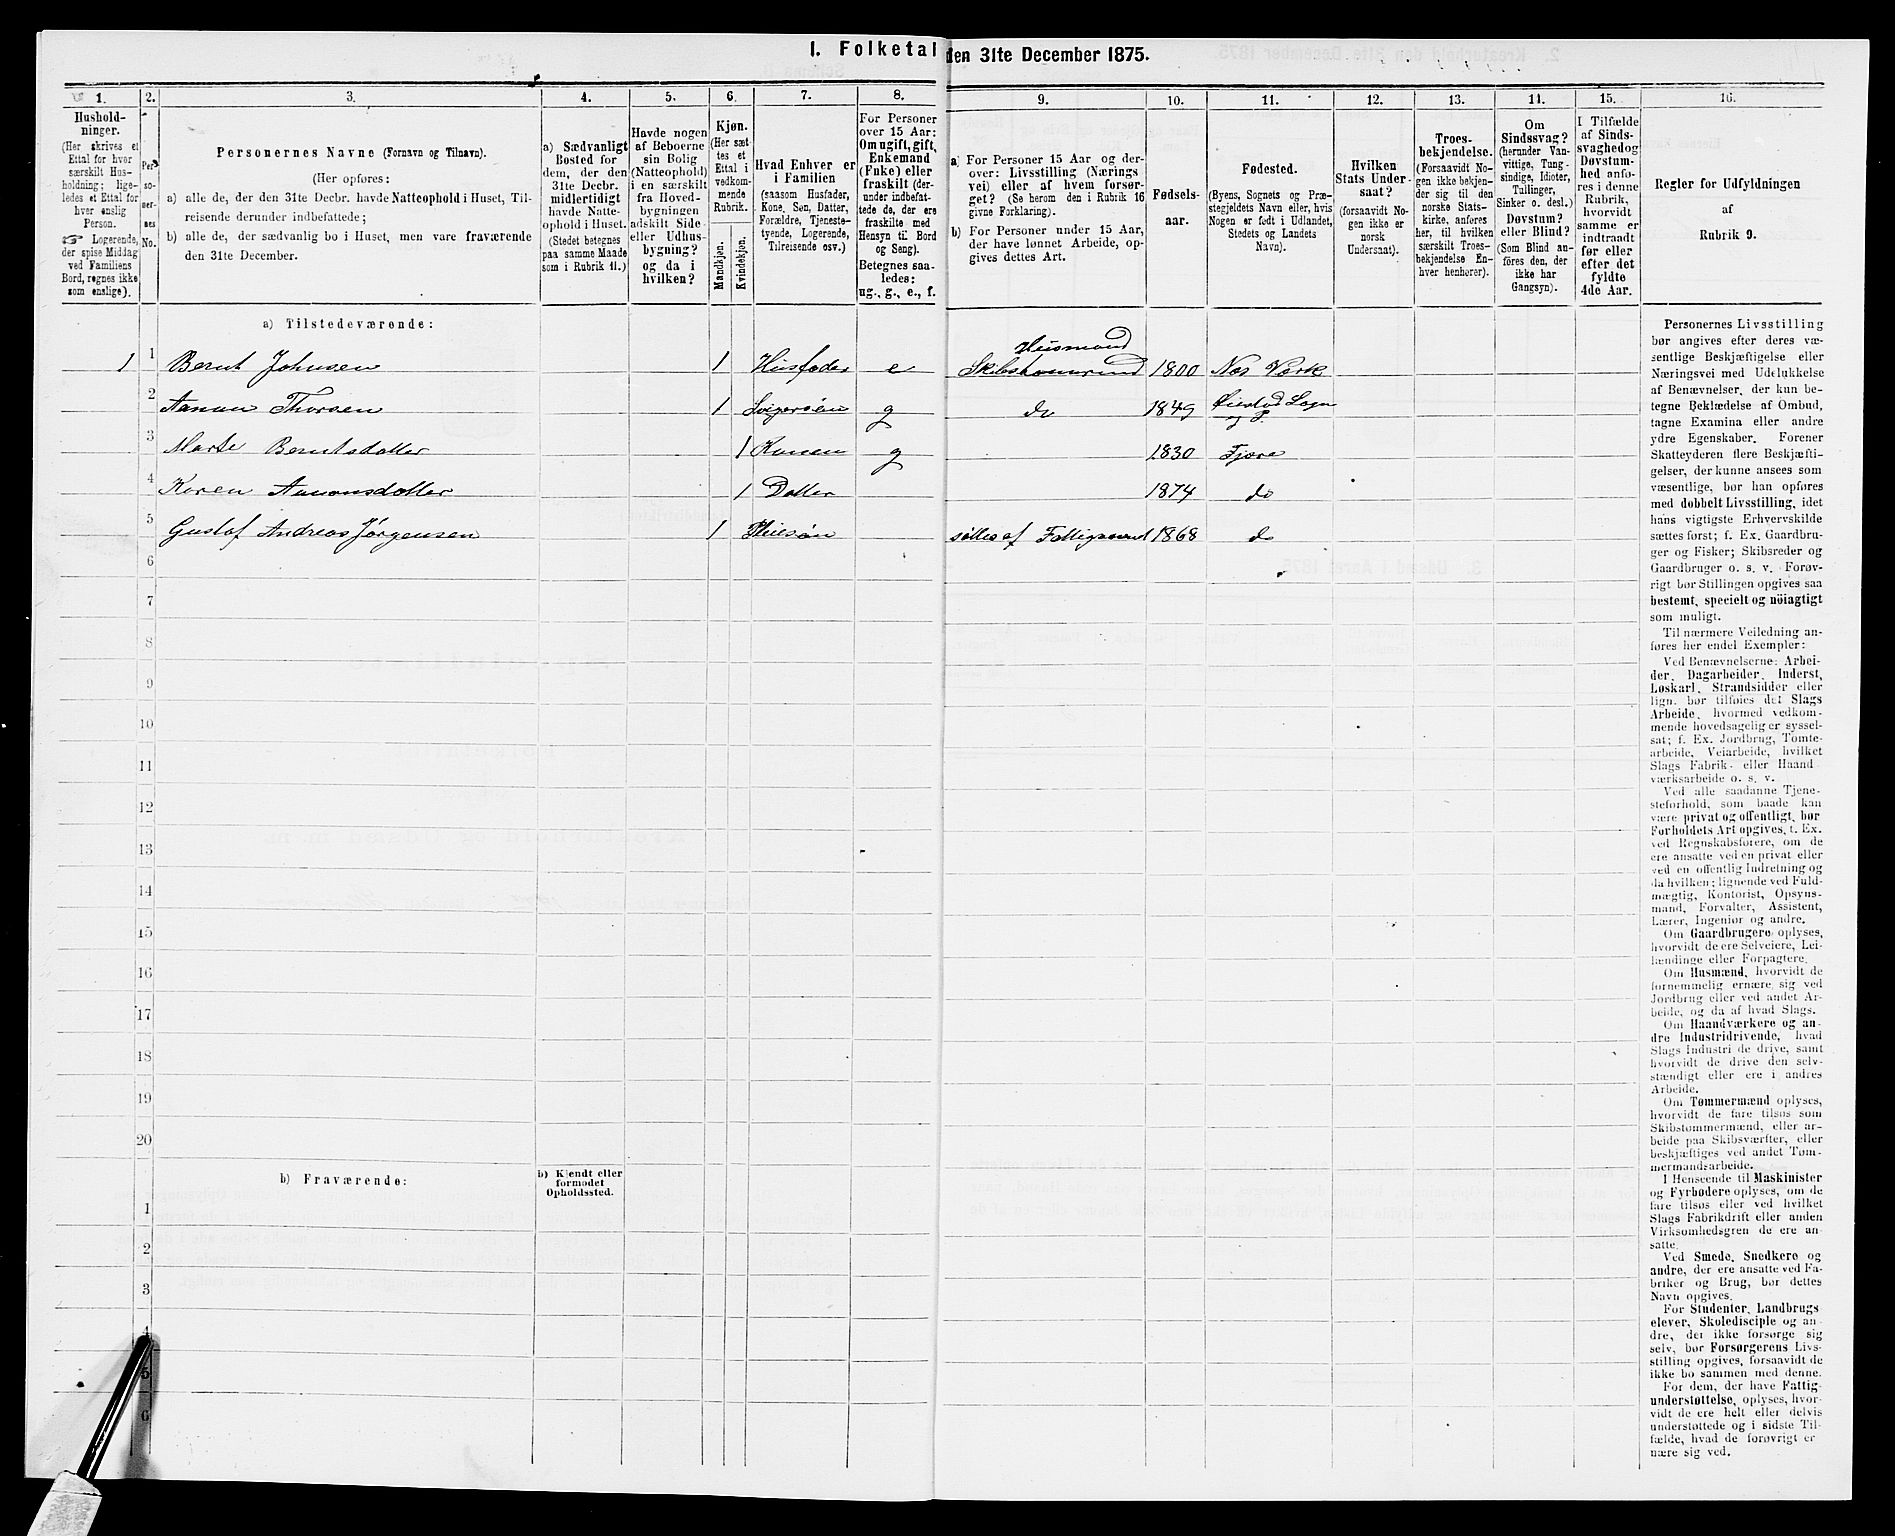 1. Folketal den 31te December 1875.
1. 2. 3. 4. 5. 6. 7. 8. 9. 10. 11. 12. 13. 14. 15. 16.
Hushold-
ninger.
(Her skrives et
Ettal for hver
særskilt Hus-
holdning; lige-
ledes et Ettal for
hver enslig
Person.
☞ Logerende,
der spise Middag
ved Familiens
Bord, regnes ikke
som enslige).
Per-
so-
ner-
nes
No.
Personernes Navne (Fornavn og Tilnavn).
(Her opføres:
a) alle de, der den 31te Decbr. havde Natteophold i Huset, Til-
reisende derunder indbefattede;
b) alle de, der sædvanlig bo i Huset, men vare fraværende
den 31te December.
a) Sædvanligt
Bosted for
dem, der den
31te Decbr.
midlertidigt
havde Natte-
ophold i Huset.
(Stedet betegnes
paa samme Maade
som i Rubrik 11.)
Havde nogen
af Beboerne
sin Bolig
(Natteophold)
i en særskilt
fra Hoved-
bygningen
adskilt Side-
eller Udhus-
bygning?
og da i
hvilken?
Kjøn.
(Her sæt-
tes et
Ettal i
vedkom-
mende
Rubrik.
Mandkjøn.
Kvindekjøn.
Hvad Enhver er
i Familien
(saasom Husfader,
Kone, Søn, Datter,
Forældre, Tjeneste-
tyende, Logerende,
Tilreisende osv.)
For Personer
over 15 Aar:
Om ugift, gift,
Enkemand
(Enke) eller
fraskilt (der-
under indbefat-
tede de, der ere
fraskilte med
Hensyn til Bord
og Seng).
Betegnes saa-
ledes:
ug., g., e., f.
a) For Personer 15 Aar og der-
over: Livsstilling (Nærings
vei) eller af hvem forsør-
get? (Se herom den i Rubrik 16
givne Forklaring).
b) For Personer under 15 Aar,
der have lønnet Arbeide, op-
gives dettes Art.
Fødsels-
aar.
Fødested.
(Byens, Sognets og Præ-
stegjeldets Navn eller, hvis
Nogen er født i Udlandet,
Stedets og Landets
Navn).
Hvilken
Stats Under-
saat?
(forsaavidt No-
gen ikke er
norsk
Undersaat).
Troes-
bekjendelse.
(Forsaavidt No-
gen ikke bekjen-
der sig til den
norske Stats-
kirke, anføres
her, til hvilken
særskilt Troes-
bekjendelse En-
hver henhører).
Om
Sindssvag?
(herunder Van-
vittige, Tung-
sindige, Idioter,
Tullinger,
Sinker o. desl.)
Døvstum?
eller Blind?
(Som Blind an-
føres den, der
ikke har
Gangsyn).
I Tilfælde
af Sinds-
svaghed og
Døvstum-
hed anfø-
res i denne
Rubrik,
hvorvidt
samme er
indtraadt
før eller
efter det
fyldte
4de Aar.
Regler for Udfyldningen
af
Rubrik 9.
a) Tilstedeværende:
Husmand
1 1 Bernt Johnsen 1 Husfader e Skibstømmermd 1800 Næs Værk
2 Aanon Thorsen 1 Svigersøn g do 1849 Øiestad Sogn
og P.
3 Marte Berntsdatter 1 Konen g 1830 Fjære
4 Karen Aanonsdatter 1 Datter 1874 do
5 Gustaf Andreas Jørgensen 1 Pleiesøn søttes af Fattigvæsnet 1868 do
6
7
8
9
10
11
12
13
14
15
16
17
18
19
20
b) Fraværende:
b) Kjendt eller
formodet
Opholdssted.
1
2
3
4
5
6
Personernes Livsstilling
bør angives efter deres væ-
sentlige Beskjæftigelse eller
Næringsvei med Udelukkelse
af Benævnelser, der kun be-
tegne Beklædelse af Ombud,
tagne Examina eller andre
ydre Egenskaber. Forener
Skatteyderen flere Beskjæfti-
gelser, der kunne ansees som
væsentlige, bør han opføres
med dobbelt Livsstilling, idet
hans vigtigste Erhvervskilde
sættes først; f. Ex. Gaardbru-
ger og Fisker; Skibsreder og
Gaardbruger o. s. v. Forøv-
rigt bør Stillingen opgives saa
bestemt, specielt og nöiagtigt
som muligt.
Til nærmere Veiledning an-
føres her endel Exempler:
Ved Benævnelserne: Arbei-
der, Dagarbeider, Inderst,
Løskarl, Strandsidder eller
lign. bør tilføies det Slags
Arbeide, hvormed vedkom-
mende hovedsagelig er syssel-
sat; f. Ex. Jordbrug, Tomte-
arbeide, Veiarbeide, hvilket
Slags Fabrik- eller Haand
værksarbeide o. s. v.
Ved alle saadanne Tjene-
steforhold, som baade kan
være privat og offentligt, bør
Forholdets Art opgives, t. Ex.
ved Regnskabsførere, om de
ere ansatte ved en privat eller
ved en offentlig Indretning og
da hvilken; lignende ved Fuld-
mægtig, Kontorist, Opsyns-
mand, Forvalter, Assistent,
Lærer, Ingeniør og andre.
Om Gaardbrugere oplyses,
hvorvidt de ere Selveiere, Lei-
lændinge eller Forpagtere.
Om Husmænd, hvorvidt de
fornemmelig ernære sig ved
Jordbrug eller ved andet Ar-
beide, og da af hvad Slags.
Om Haandværkere og an-
dre Industridrivende, hvad
Slags Industri de drive, samt
hvorvidt de drive den selv-
stændigt eller ere i andres
Arbeide.
Om Tømmermænd oplyses,
hvorvidt de fare tilsøs som
Skibstømmermænd, eller ar-
beide paa Skibsværfter, eller
beskjæftiges ved andet Tøm-
mermandsarbeide.
I Henseende til Maskinister
og Fyrbødere oplyses, om de
fare tilsøs eller ved hvilket
Slags Fabrikdrift eller anden
Virksomhedsgren de ere an-
satte.
Ved Smede, Snedkere og
andre, der ere ansatte ved Fa-
briker og Brug, bør dettes
Navn opgives.
For Studenter, Landbrugs
elever, Skoledisciple og an-
dre, der ikke forsørge sig
selv, bør Forsørgerens Livs-
stilling opgives, forsaavidt de
ikke bo sammen med denne.
For dem, der have Fattig
understøttelse, oplyses, hvor-
vidt de ere helt eller delvis
understøttede og i sidste Til-
fælde, hvad de forøvrigt er
nære sig ved.